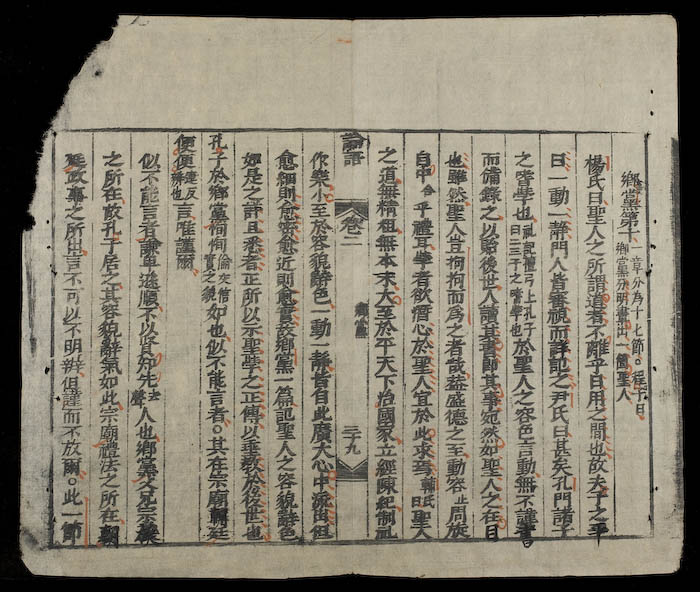 鄉黨第十 一章分為十七節。程子曰鄉黨分明畫出一箇聖人
楊氏曰聖人之所謂道者不離乎日用之間也故夫子之平
日一動一靜門人皆審視而詳記之尹氏曰甚矣孔門諸子
之嗜學也礼記檀弓上孔子曰二三子之嗜學也於聖人之容色言動無不謹書
而備錄之以貽後世今讀其書即其事宛然如聖人之在目
也雖然聖人豈拘拘而為之者哉蓋盛德之至動容止周旋
自中合乎禮耳學者欲潛心於聖人宜於此求焉輔氏曰聖人
之道無精粗無本末大至於平天下治國家立經陳紀制礼
論語 卷二 鄉黨 三十九
作樂小至於容貌辭色一動一靜皆自此廣大心中流出但
愈細則愈密愈近則愈實故鄉黨一篇記聖人之容貌辭色
如是之詳且悉者正所以示聖學之正傳以垂教於後世也
孔子於鄉黨恂恂倫交信實之貌如也似不能言者。其在宗廟朝廷
便便連反辨也言唯謹爾
似不能言者謙卑遜順不以賢知先去聲人也鄉黨父兄宗族
之所在故孔子居之其容貌辭氣如此宗廟禮法之所在朝
廷政事之所出言不可以不明辨但謹而不放爾。此一節